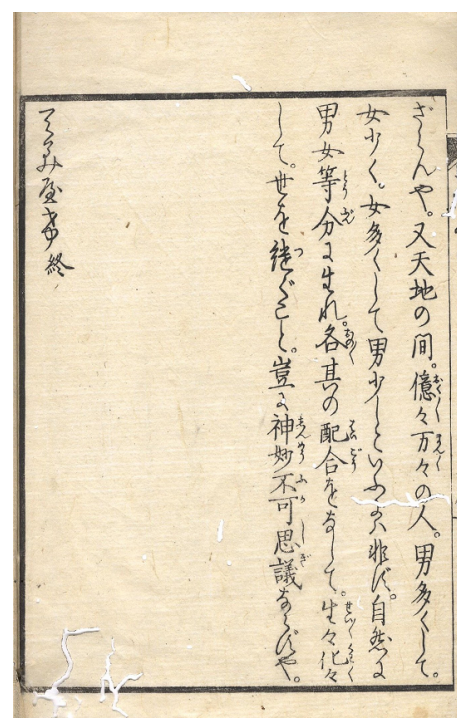 ざらんや。又天地の間。億々万々の人。男多くして。
女少く。女多くして男少しといふにハ非ず。自然に
男女等分に生れ。各其の配合をなして。生々化々
して。世を継ぐこと。豈に神妙不可思議ならずや。
終